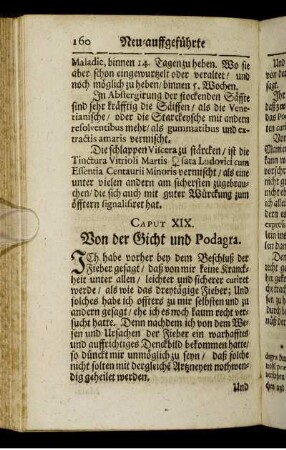 160 Neu-auffgeführte
Maladie, binnen 14. Tagen zu heben. Wo sie
aber schon eingewurtzelt oder veraltet / und
noch möglich zu heben / binnen 5. Wochen.
In Abstergirung der stockenden Säffte
sind sehr kräfftig die Säiffen / als die Vene-
tianische / oder die Starckeysche mit andern
resolventibus mehr / als gummatibus und ex-
tractis amaris vermischt.
Die schlappen Viscera zu stärcken / ist die
Tinctura Vitrioli Martis ♀sata Lodovici cum
Essentia Centaurii Minoris vermischt / als eine
unter vielen andern am sichersten zugebrau-
chen / die sich auch mit guter Würckung zum
öfftern signalisiret hat.
CAPUT XIX.
Von der Gicht und Podagra.
ICh habe vorher bey dem Beschluß der
Fieber gesagt / daß von mir keine Kranck-
heit unter allen / leichter und sicherer curiret
werde / als wie das dreytägige Fieber: Und
solches habe ich öffters zu mir selbsten und zu
andern gesagt / ehe ich es noch kaum recht ver-
sucht hatte. Denn nachdem ich von dem We-
sen und Ursachen der Fieber ein warhafftes
und auffrichtiges Denckbild bekommen hatte /
so dünckt mir unmöglich zu seyn / daß solche
nicht solten mit dergleichē Artzneyen nothwen-
dig geheilet werden.
Und